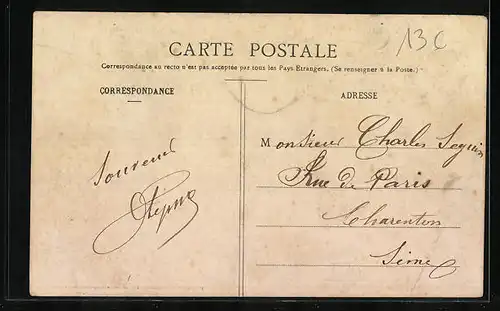 13C
CARTE POSTALE
Correspondance au recto n'est pas acceptée par tous les Pays Etrangers. (Se renseigner à la Poste.)
CORRESPONDANCE
ADRESSE
Souvenir
Monsieur Charles Seguin
Rue de Paris
Charenton
Seine